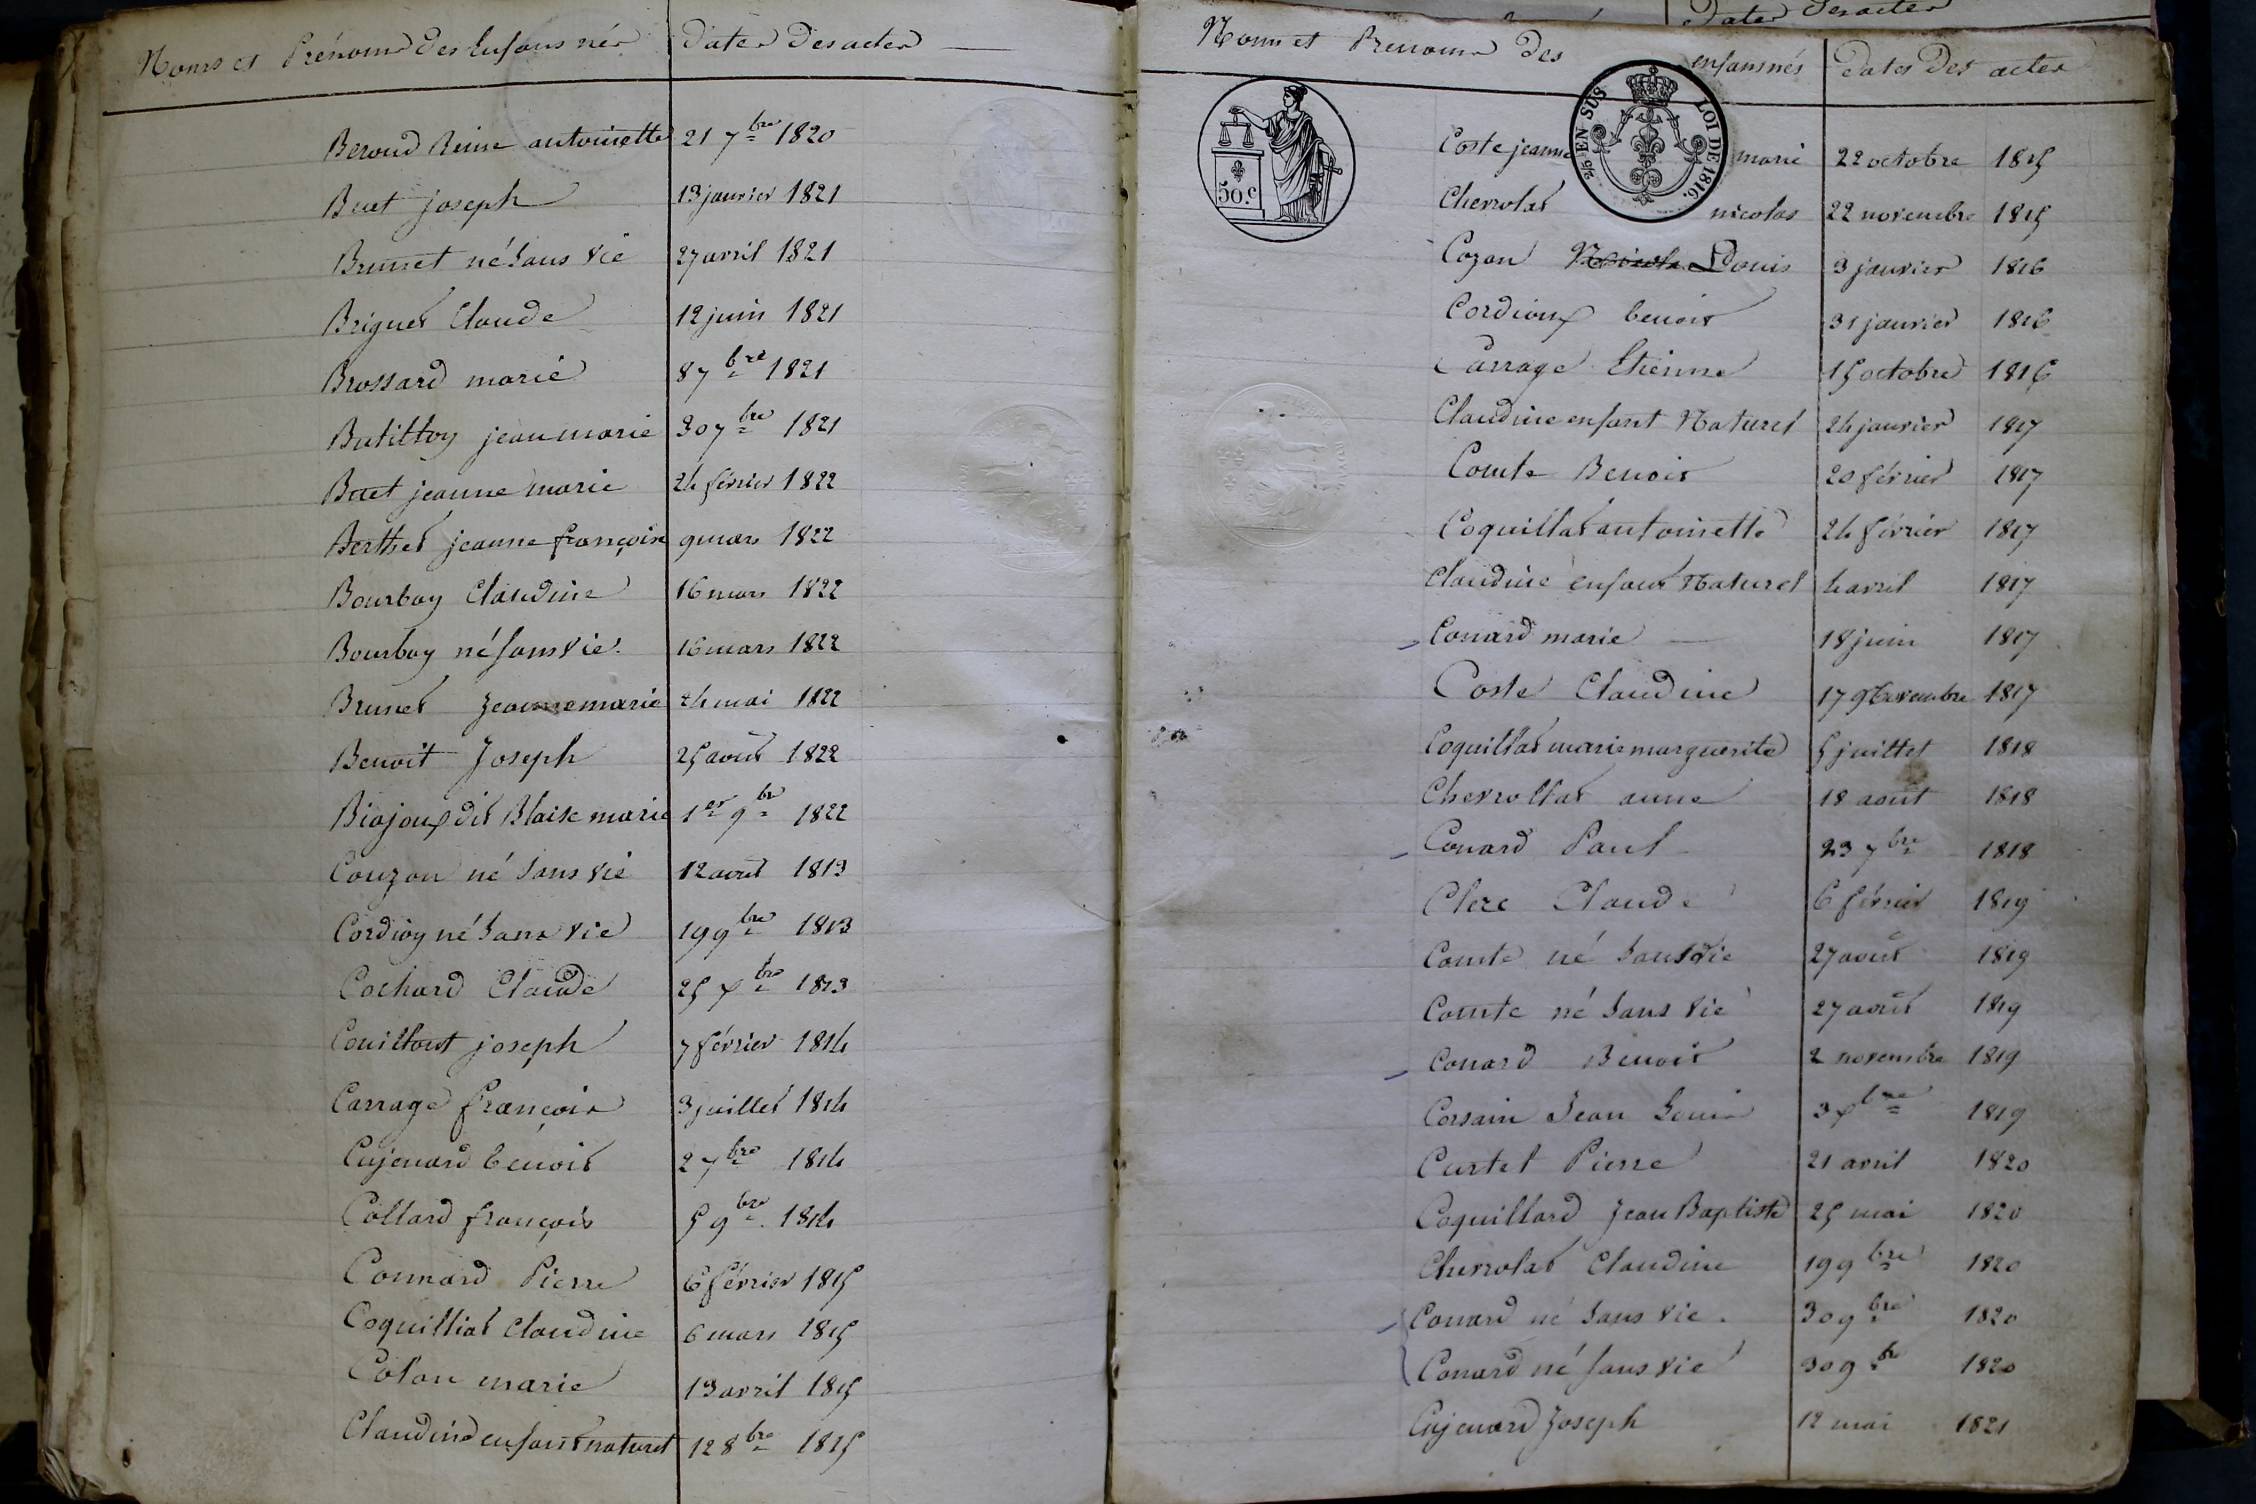 Noms et Prénoms des Enfans nés | Dates des actes
Beroud Reine antoinette 21 7bre 1820
Beat joseph 13 janvier 1821
Brunet né sans vie 27 avril 1821
Briguet Claude 12 juin 1821
Brossard marie 8 7bre 1821
Batilloy jean marie 30 7bre 1821
jeanne marie 24 février 1822
Berthet jeanne françoise 9 mars 1822
Bourboy Claudine 16 mars 1822
Bourboy né sans vie 16 mars 1822
Brunet Jeanne marie 24 mai 1822
Benoit Joseph 25 aout 1822
Biajoux dit Blaise marie 1er 9bre 1822
Couzon né sans vie 12 aout 1813
Cordioy né sans vie 19 9bre 1813
Cochard Claude 25 xbre 1813
joseph 7 février 1814
Carrage françois 3 juillet 1814
Cujenard benoit 2 7bre 1814
Collard françois 5 9bre 1814
Connard Pierre 6 février 1815
Coquilliat Claudine 6 mars 1815
Colon marie 13 avril 1815
Claudine enfant naturel 12 8bre 1815
dates des actes
Noms et Prenoms des enfans nés | dates des actes
50.c
2/10 EN SUS
LOI DE 1816.
Coste jeanne marie 22 octobre 1815
Chevrolat nicolas 22 novembre 1815
Cozon Louis 3 janvier 1816
Cordioux benoit 31 janvier 1816
Carrage Etienne 15 octobre 1816
Claudine enfant Naturel 24 janvier 1817
Comte Benoit 20 février 1817
Coquillat antoinette 24 février 1817
Claudine enfant Naturel 4 avril 1817
Conard marie 18 juin 1817
Coste Claudine 17 novembre 1817
Coquillat marie marguerite 5 juillet 1818
Chevrollat anne 18 aout 1818
Conard Paul 23 7bre 1818
Clerc Claude 6 février 1819
Comte né sans vie 27 aout 1819
Comte né sans vie 27 aout 1819
Conard Benoit 2 novembre 1819
Corsain Jean Louis 3 xbre 1819
Curtet Pierre 21 avril 1820
Coquillard Jean Baptiste 25 mai 1820
Chevrolat Claudine 19 9bre 1820
Conard né sans vie 30 9bre 1820
Conard né sans vie 30 9bre 1820
Cujenard Joseph 12 mai 1821